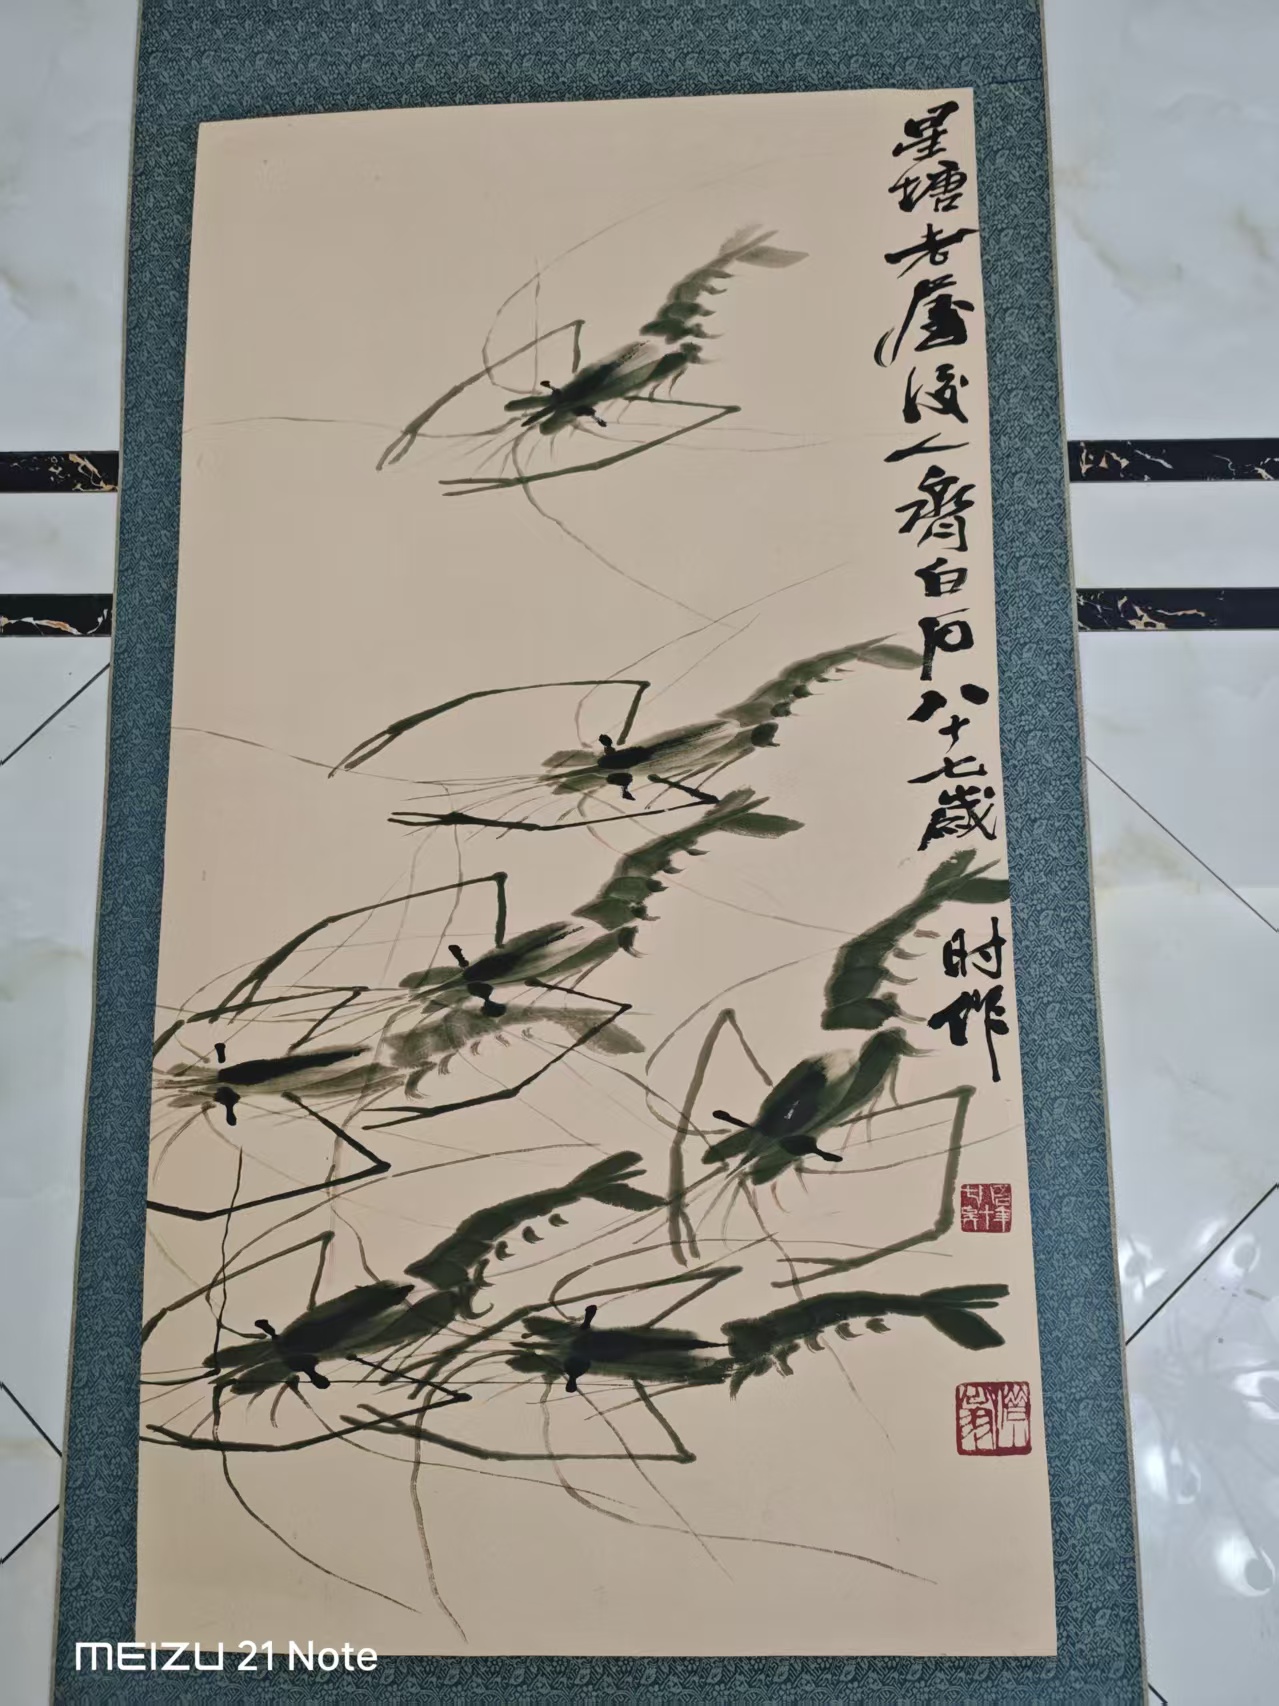 星塘老屋後人齊白石八十七歲
时作
MEIZU 21 Note